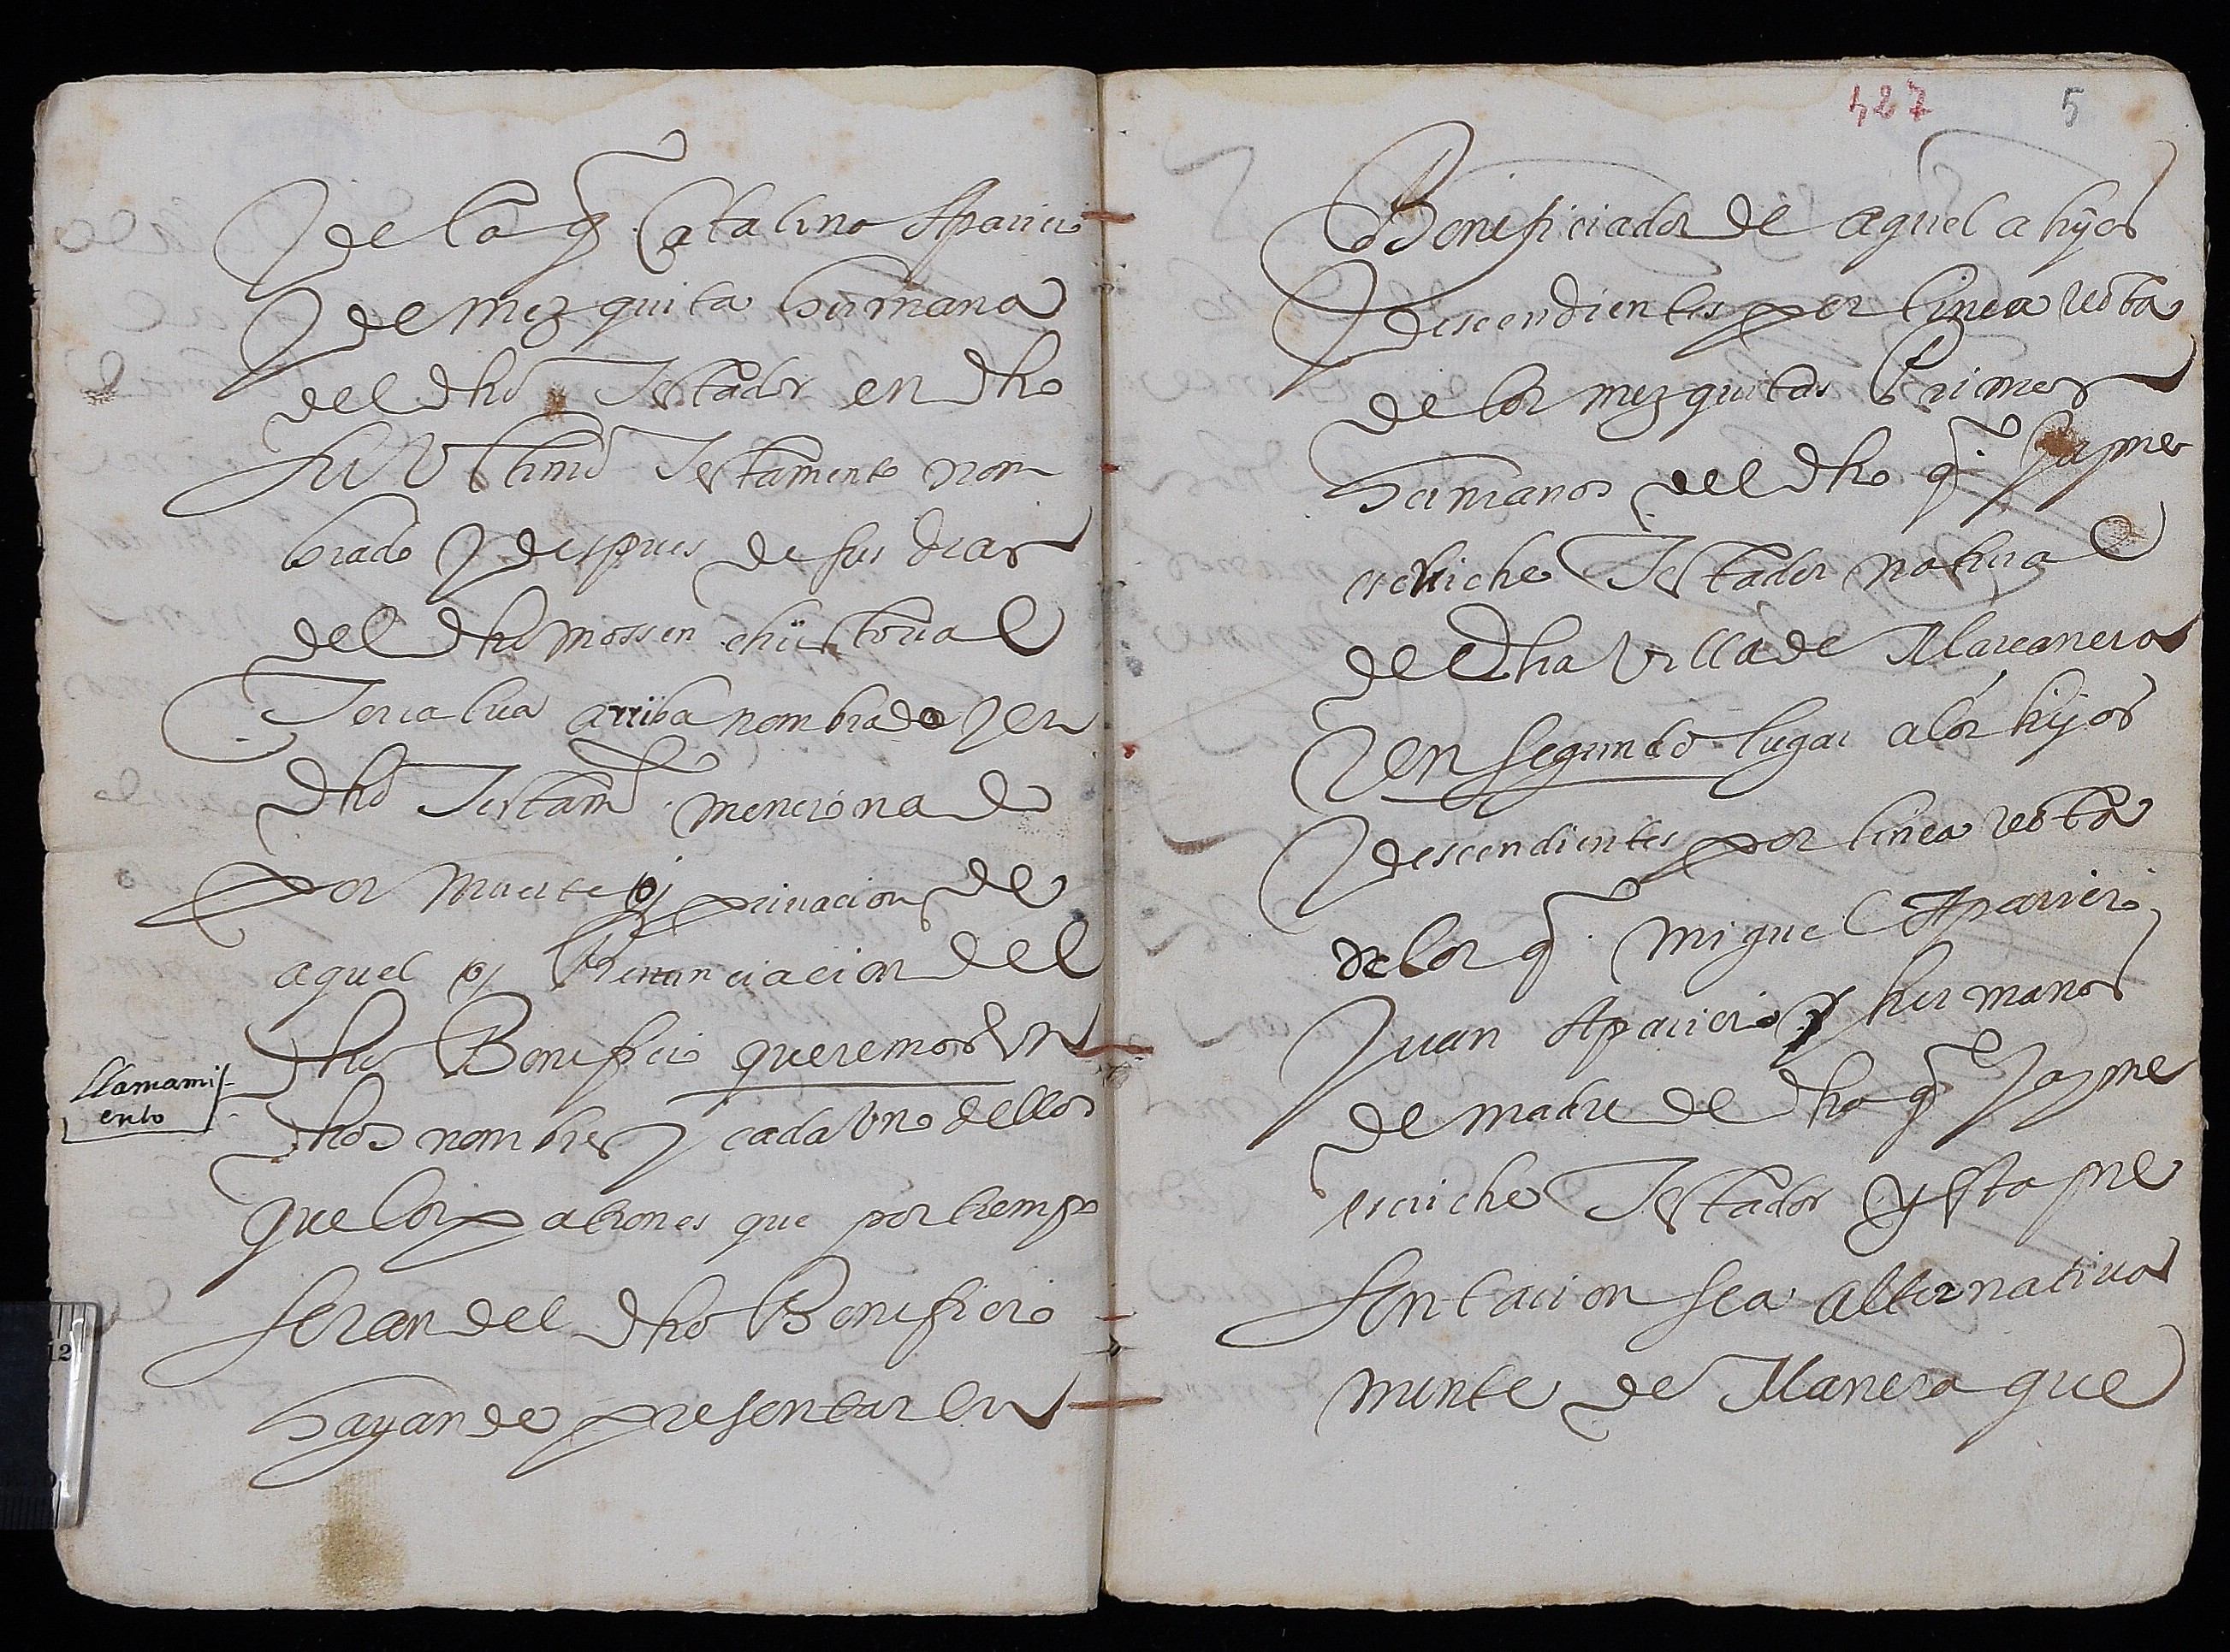 y de la qͫ Catalina Aparicio
y de mezquita hermana
del dho Testador en dho
su Ultimo Testamento nom
brado y despues de sus dias
del dho mossen christoual
Terialua arriba nombrado y en
dho Testamᵗᵒ mencionado
por muerte o/ priuacion de
aquel o/ Renunciacion del
dho Beneficio queremos en
dhos nombres y cada Uno dellos
que los patrones que por tiempo
seran del dho Beneficio
hayan de presentar en
llamami
ento
487 5
Beneficiador de aquel a hijos
y descendientes por linea recta
de los mezquitas Primos
hermanos del dho qͫ Jayme
escriche Testador natural
de dha Villa de Mançanera
y en segundo lugar a los hijos
y descendientes por linea recta
de los qͫ Miguel Aparicio y
Juan Aparicio y hermanos
de madre de dho qͫ Jayme
escriche Testador y esta pre
sentacion sea alternatiua
mente de Manera que